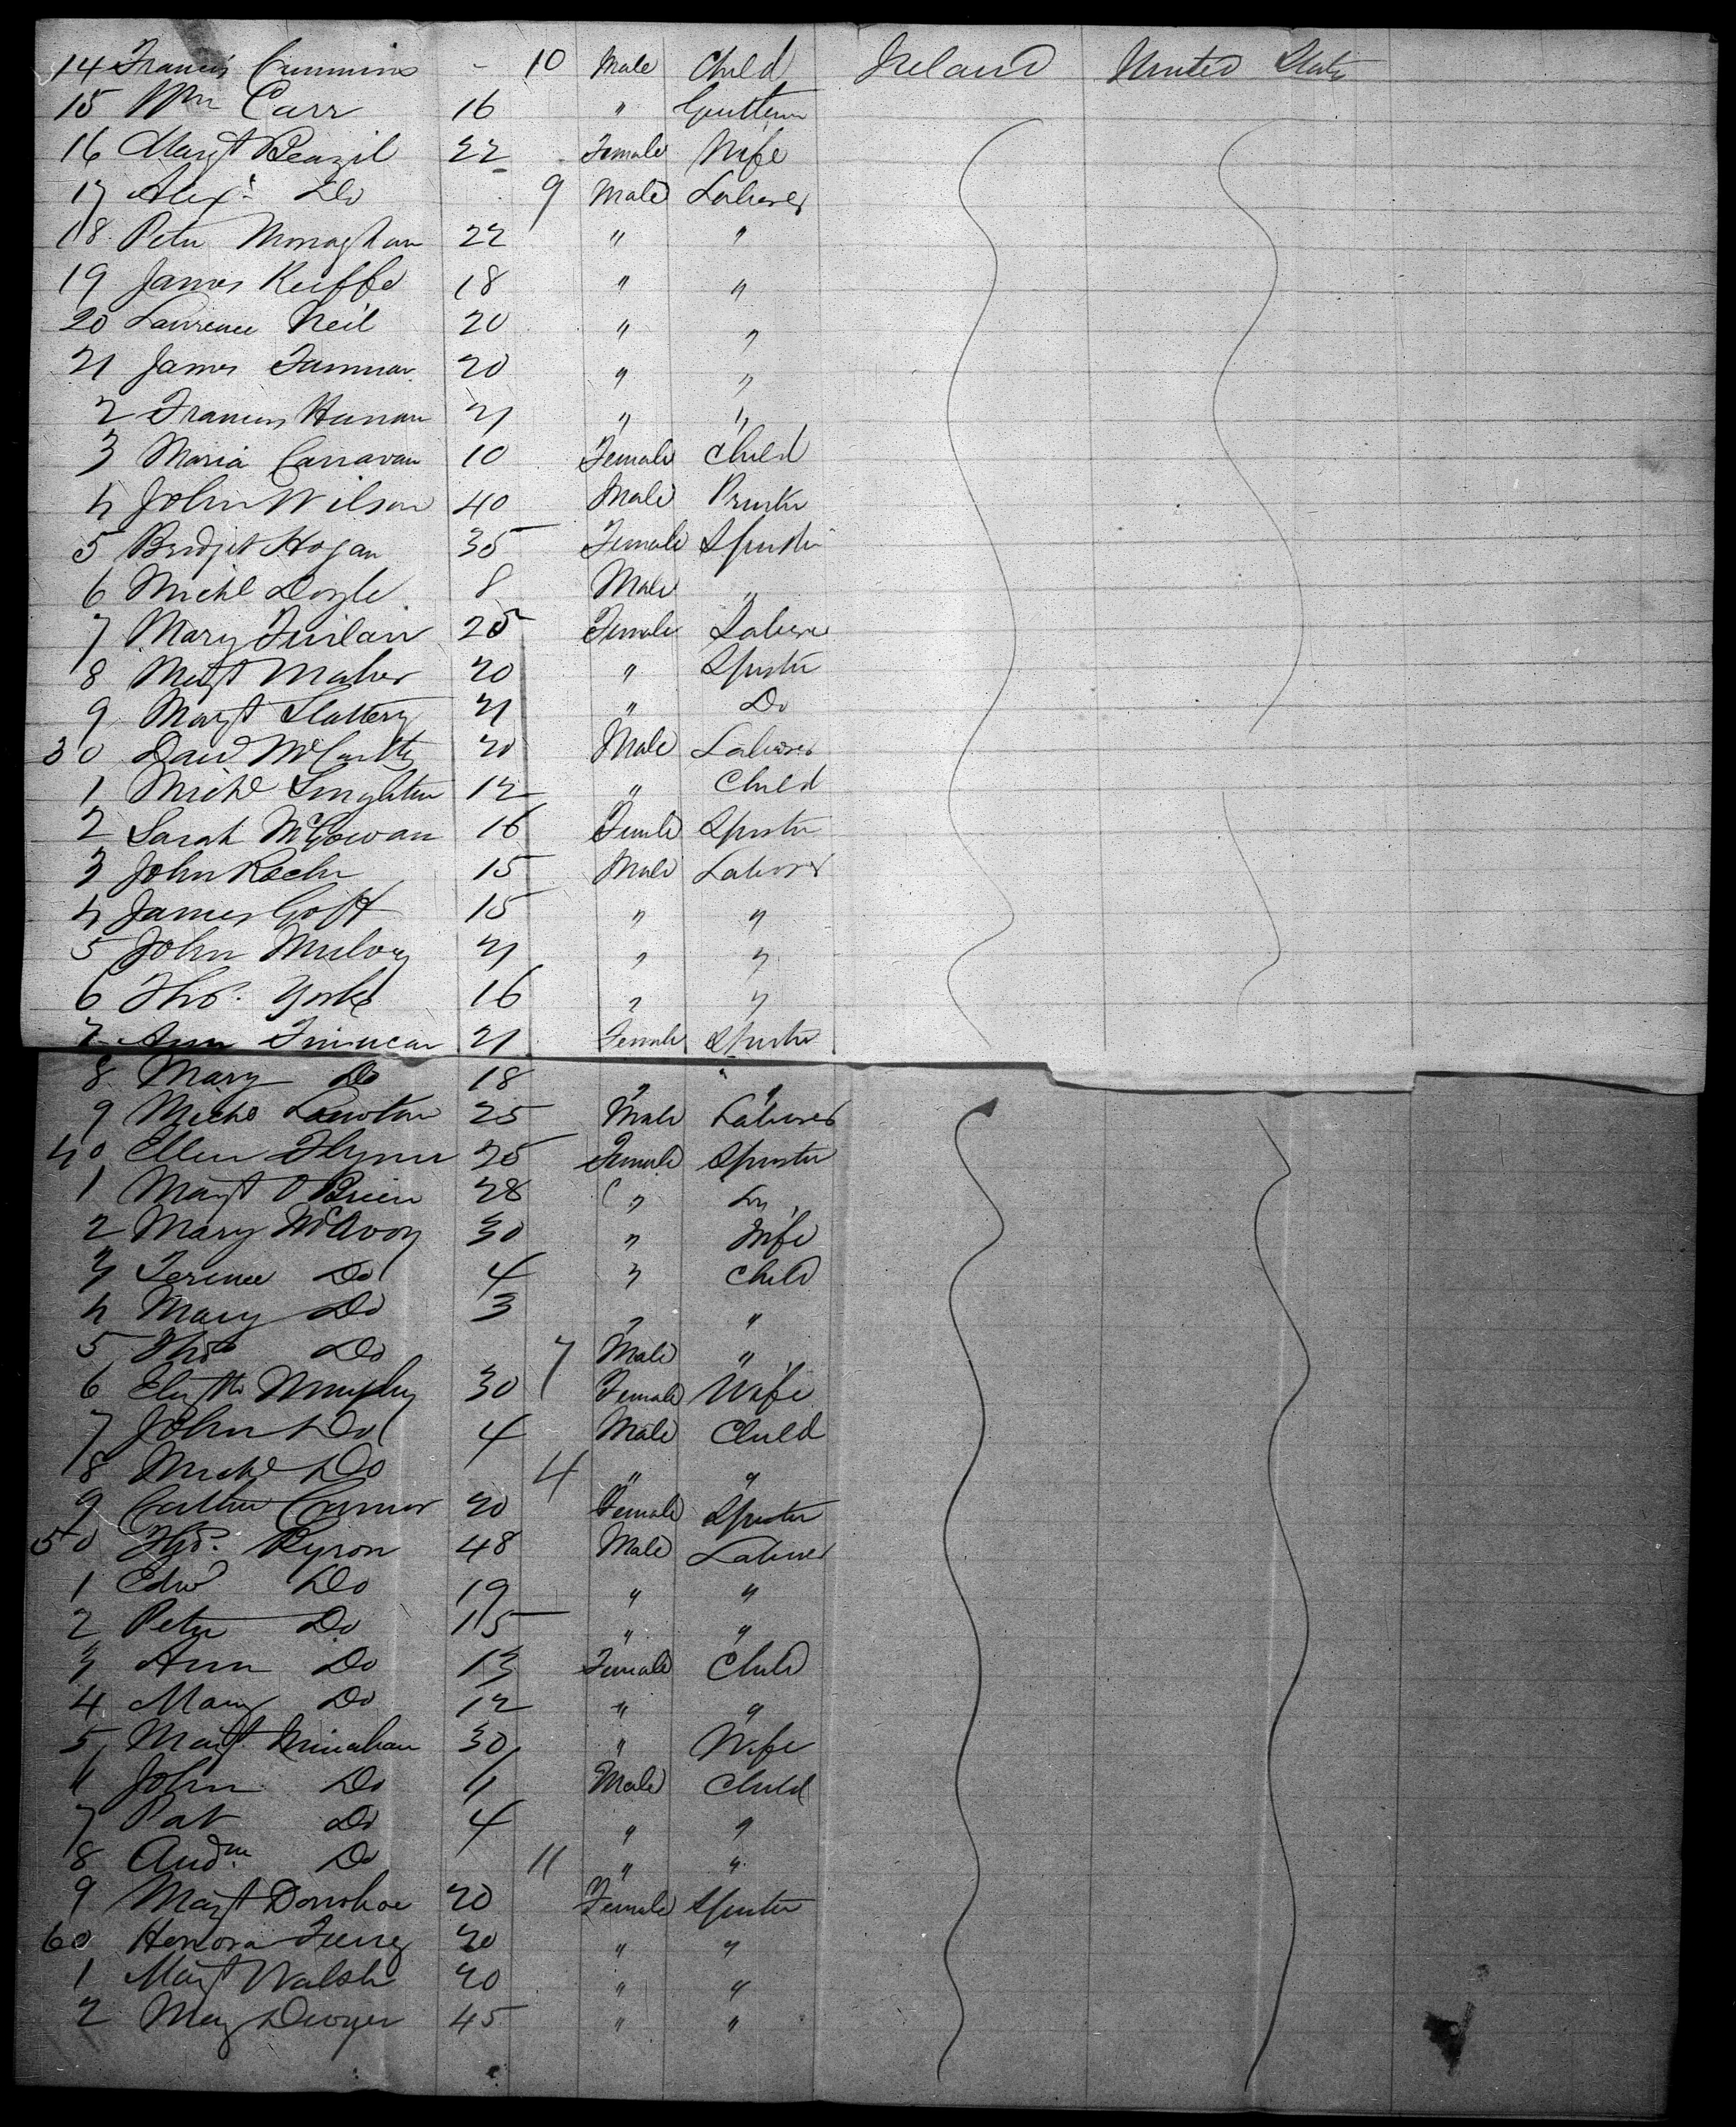 14 Francis Cummins - 10 Male Child Ireland United States
15 Wm Carr 16 " Gentleman
16 Margt Beazil 22 Female Wife
17 Alexr Do 9 Male Laborer
18 Peter Monaghan 22 " "
19 James Keiffe 18 " "
20 Lawrence Neil 20 " "
21 James 20 " "
2 Francis 21 " "
3 Maria Canavan 10 Female Child
4 John Wilson 40 Male
5 Bridget Hogan 35 Female Spinster
6 Michl Doyle 8 Male "
7 Mary 25 Female Laborer
8 Margt Maher 20 " Spinster
9 Margt Slattery 21 " Do
30 David McCarthy 20 Male Laborer
1 Michl Singleton 12 " Child
2 Sarah McGowan 16 Female Spinster
3 John Roche 15 Male Laborer
4 James Goff 15 " "
5 John Mulvey 21 " "
6 Thos. Yorke 16 " "
7 Ann Finucan 21 Female Spinster
8 Mary Do 18 " "
9 Michl 25 Male Laborer
40 Ellen Flynn 25 Female Spinster
1 Margt O'Brien 28 "
2 Mary McAvoy 30 " Wife
3 Terence Do 4 " Child
4 Mary Do 3 " "
5 Thos Do 7 Male "
6 Elizth Murphy 30 Female Wife
7 John Do 4 Male Child
8 Michl Do 4 " "
9 Connor 20 Female Spinster
50 Thos. Ryron 48 Male Laborer
1 Edwd Do 19 " "
2 Peter Do 15 " "
3 Ann Do 13 Female Child
4 Mary Do 12 " "
5 Margt. Minahan 30 " Wife
6 John Do 11 Male Child
7 Pat Do 4 " "
8 Do 11 " "
9 Margt Donohoe 20 Female Spinster
60 Honora 20 " "
1 Margt Walsh 20 " "
2 Mary Dwyer 45 " "